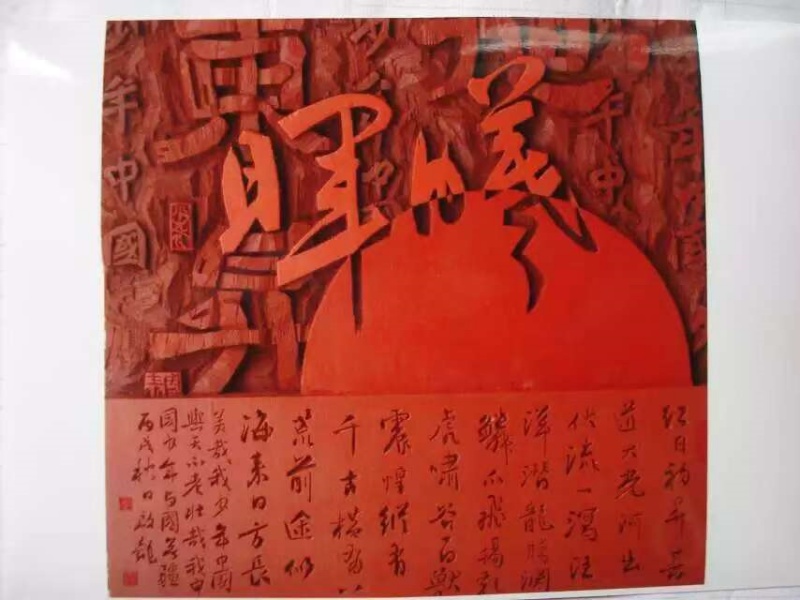 曦暉
年國
年中
東
年中國
紅日初升其
道大光河出
伏流一瀉汪
洋潛龍騰淵
鱗爪飛揚乳
虎嘯谷百獸
震惶縱有
千古橫有八
荒前途似
海來日方長
美哉我少年中國
與天不老壯哉我中
國少年與國無疆
丙戌秋日啟龍